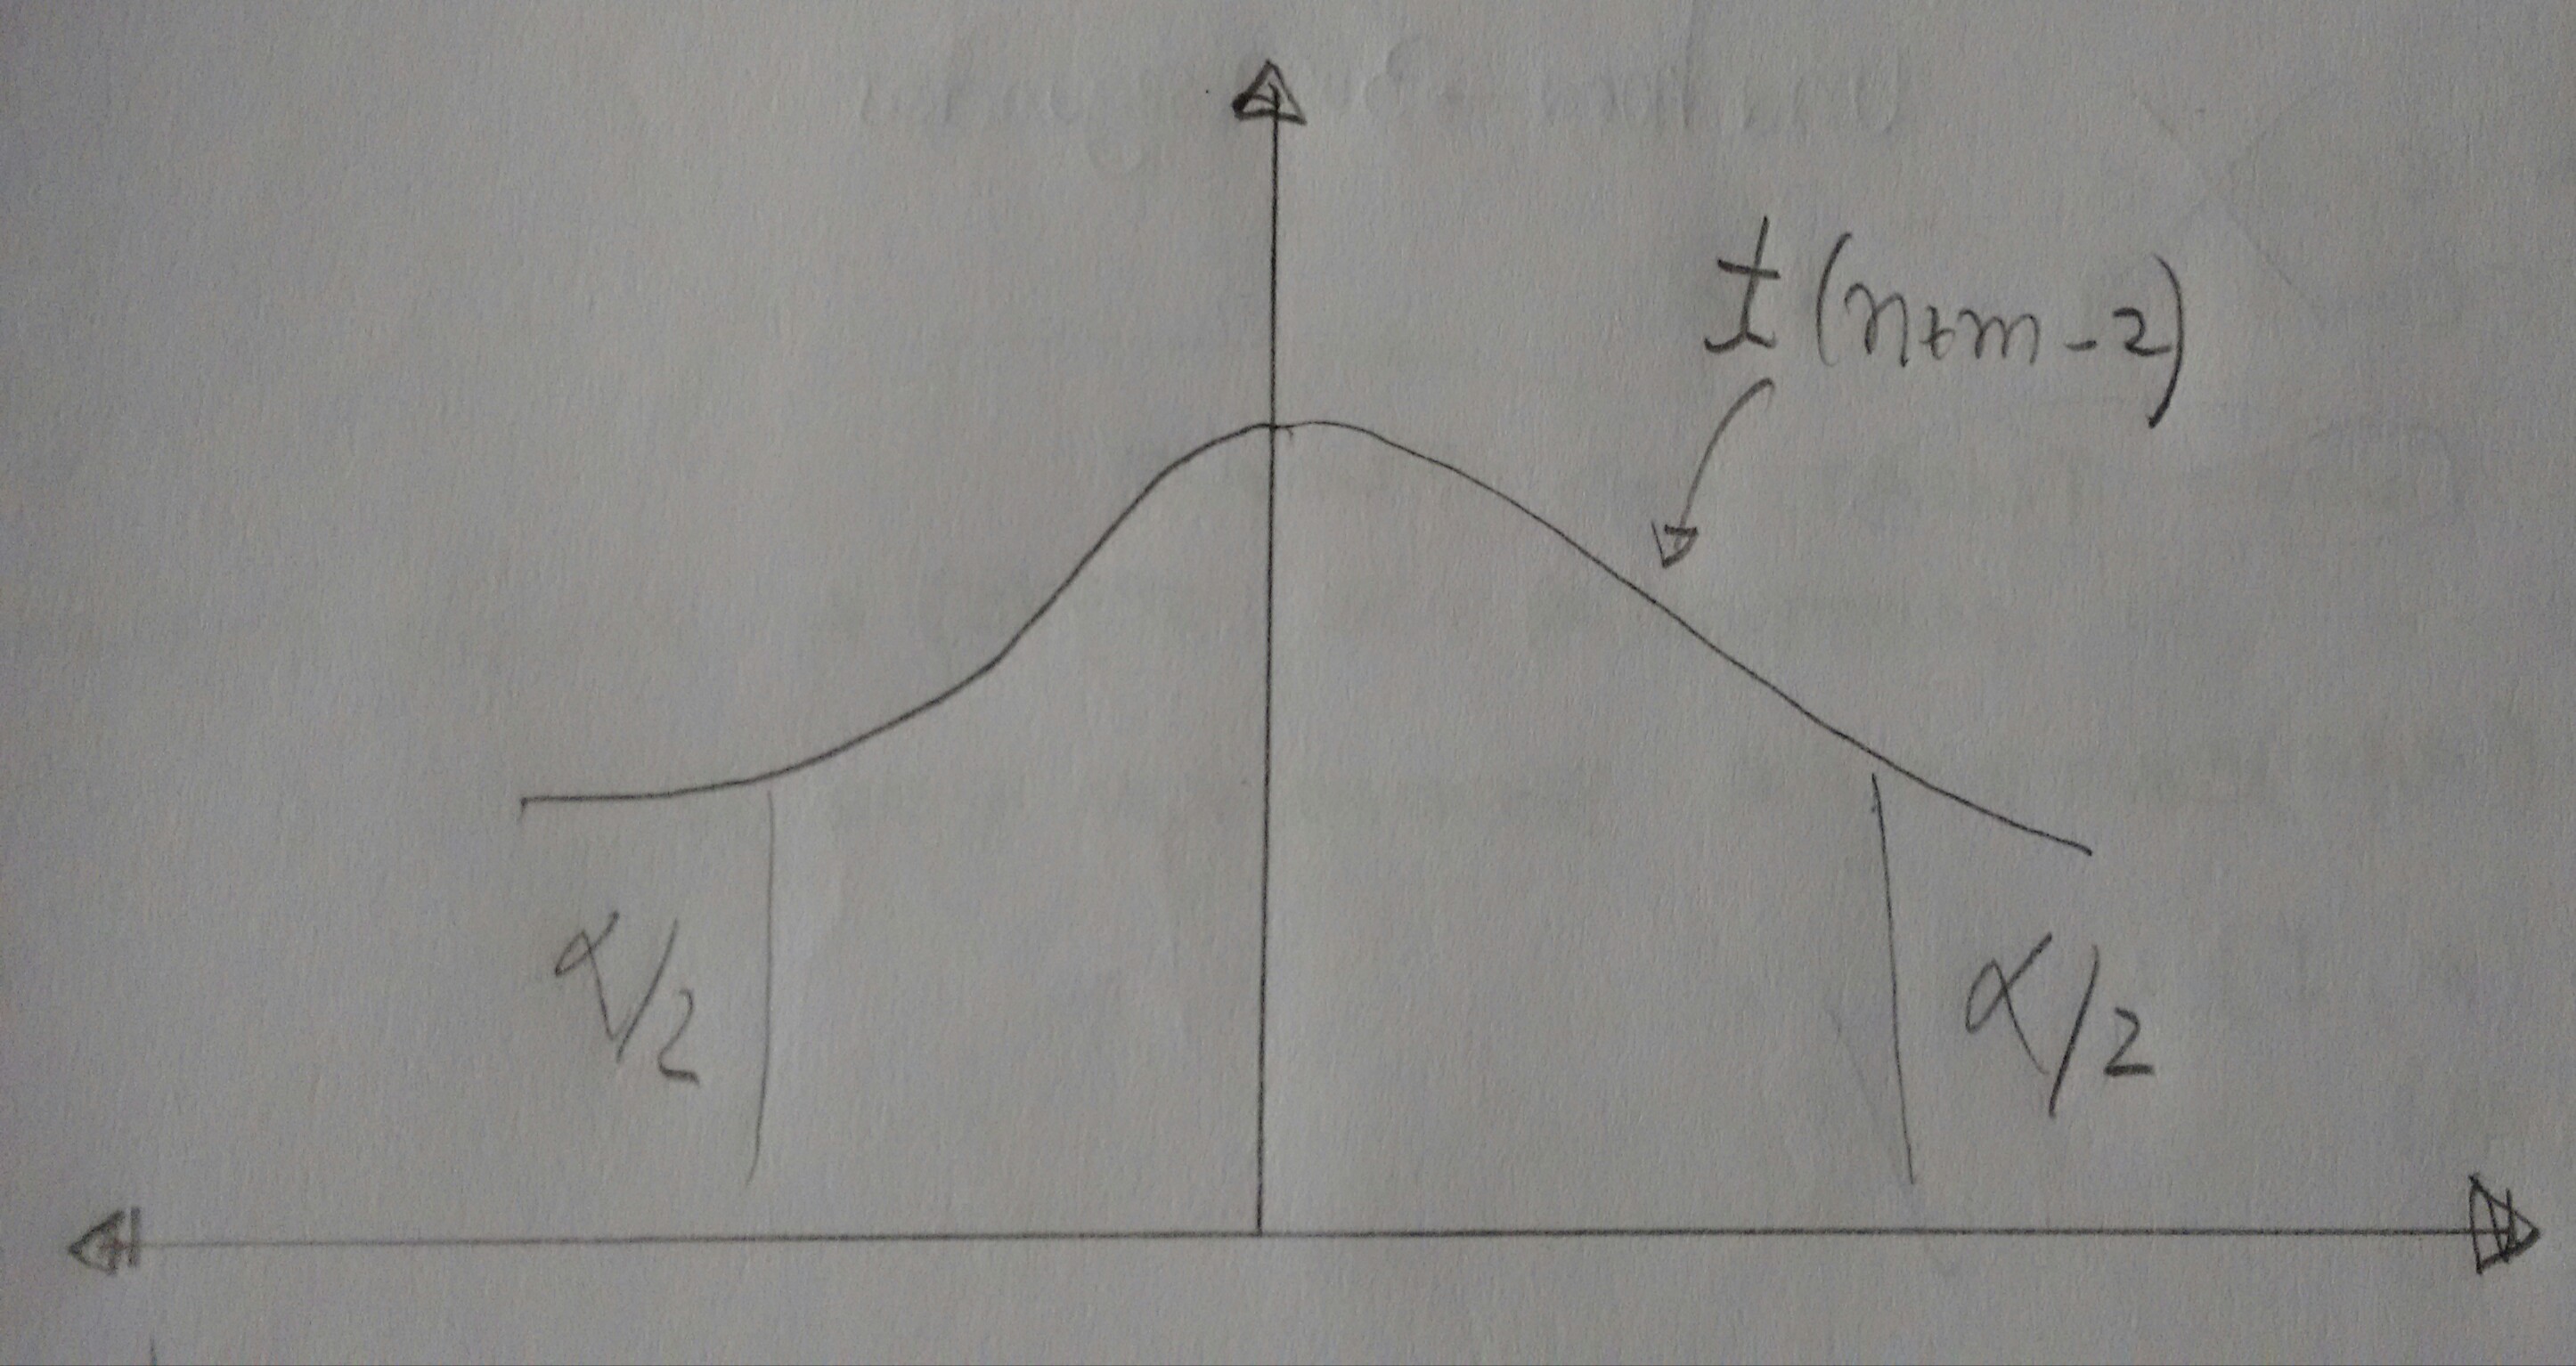 t (n+m-2)
α/2
α/2